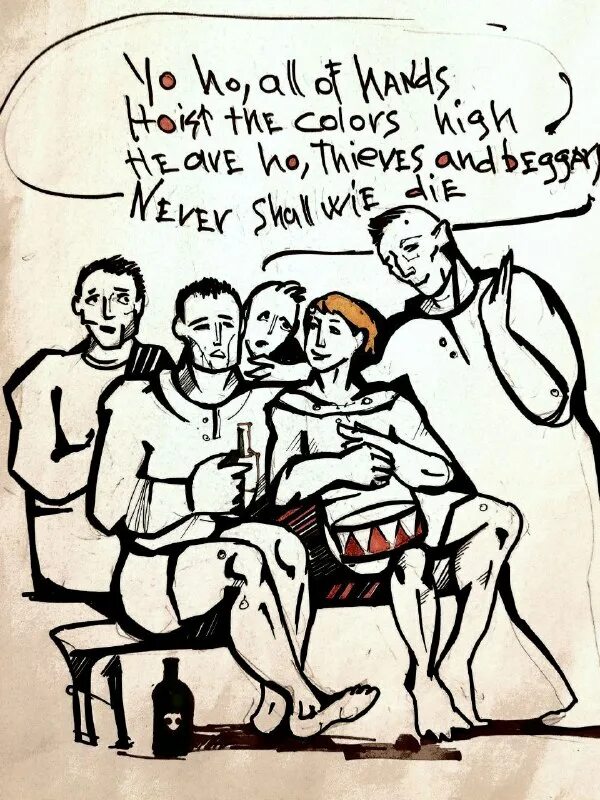 Yo ho, all of hands
Hoist the colors high
Heave ho, thieves and beggars
Never shall wie die